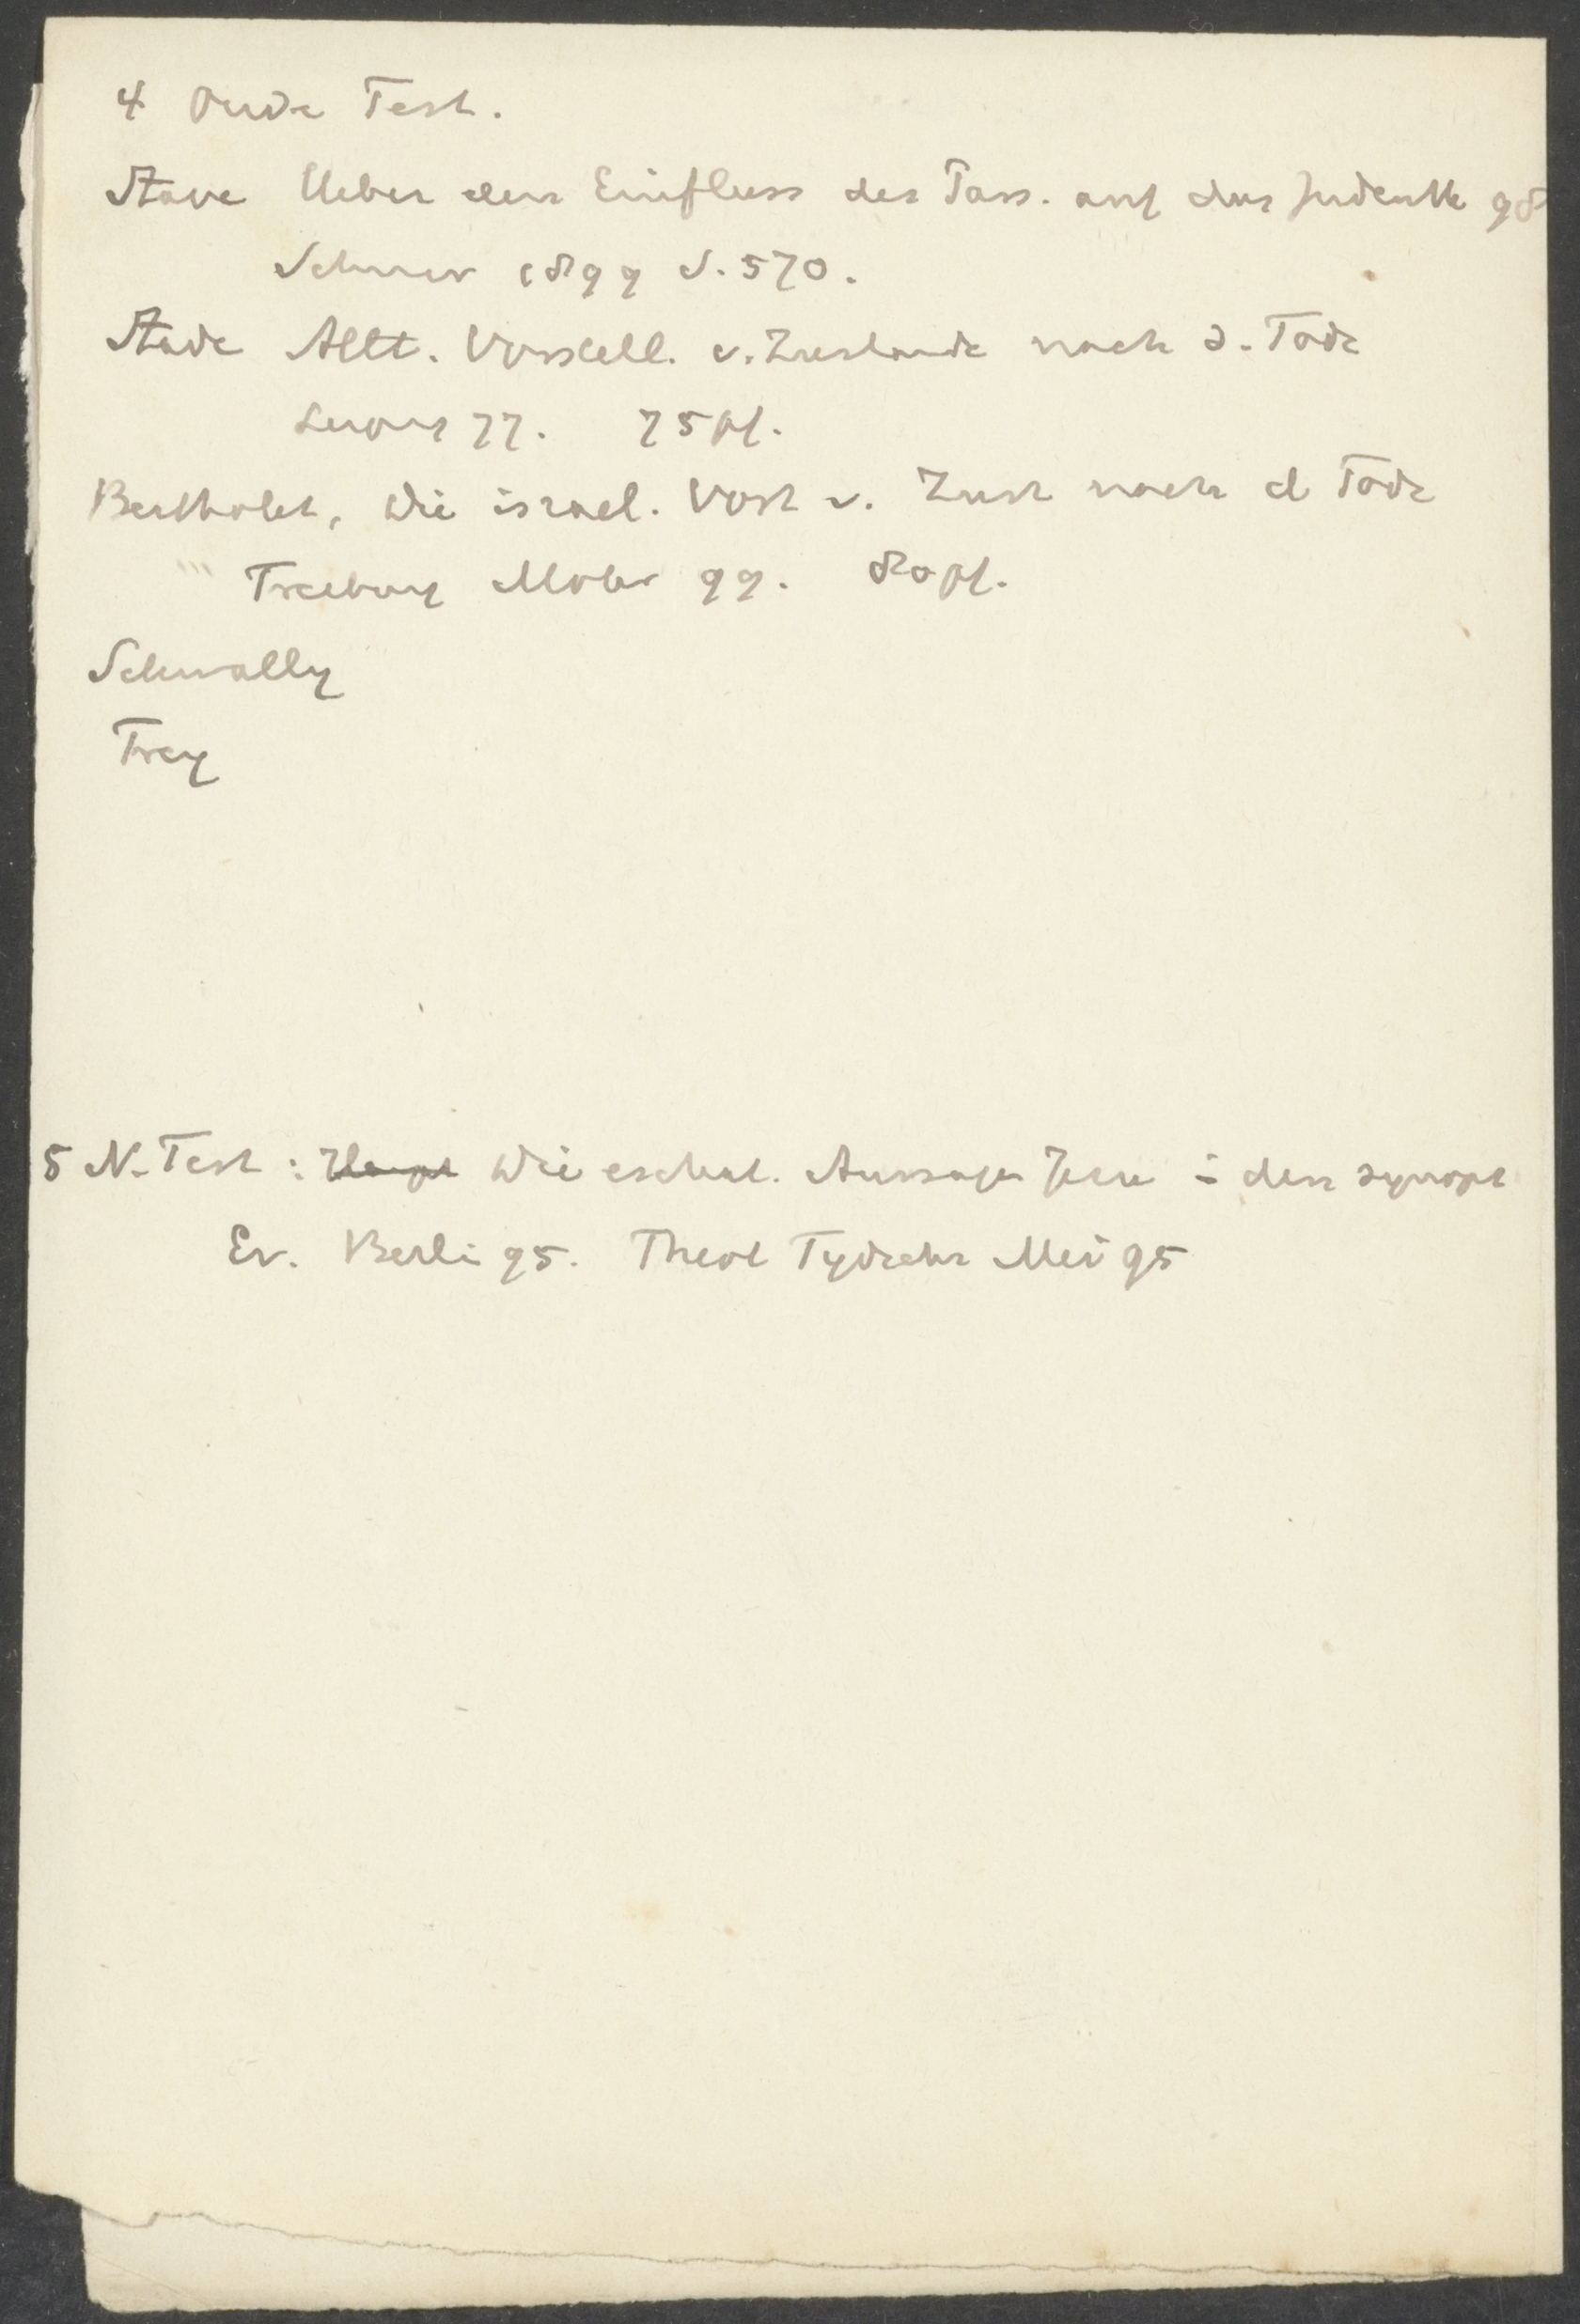 4 Oude Test.
Stave Ueber den Einfluss des Pars. auf das Judenth 98
Schurer 1899 S. 570.
Stade Altt. Vorstell. v. Zustande nach d. Tode
Leipzig 77. 75 pf.
Bertholet, Die israel. Vorst v. Zust nach d Tode
Freiburg Mohr 99. 80 pf.
Schwally
Frey
5 N. Test: Haupt Die eschat. Aussagen Jesu i den synopt
Ev. Berlin 95. Theol Tydschr Mei 95